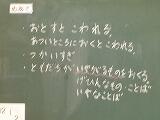 ・おとすと こわれる。
あついところに おくと こわれる。
・つかいすぎ
・ともだちが いやがるものを おくる。
げひんなもの・ことば
いやなことば